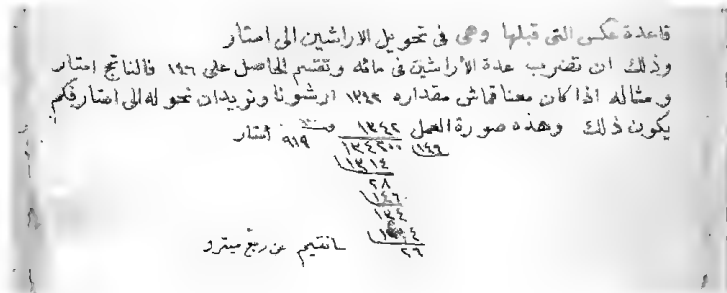 قاعدة عكس التى قبلها وهى فى تحويل الاراشين الى امتار
وذلك ان تضرب عدة الأراشين فى مائه وتقسم الحاصل على ١٤٦ فالناتج امتار
ومثاله اذا كان معنا قماش مقداره ١٣٤٢ ارشونا ونريد ان نحوله الى امتار فكم
يكون ذلك وهذه صورة العمل ١٣٤٢ ٩١٩ أمتار
١٣٤٢٠٠ ١٤٦
١٣١٤
٢٨
١٤٦
١٣٤
٢٦ سانتيم عن ربع ميترو